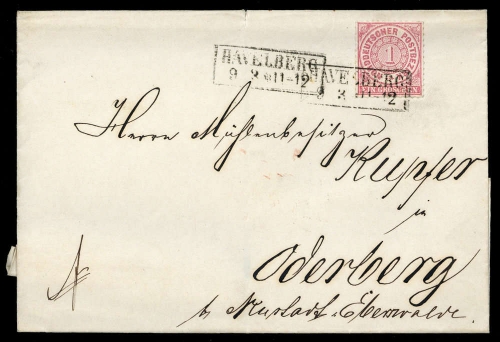 HAVELBERG
9 3 11-12
HAVELBERG
9 3 11-12
NORDDEUTSCHER POSTBEZIRK
1
EIN GROSCHEN
Herrn Mühlenbesitzer
Kupfer
in
Oderberg
b. Neustadt-Eberswalde.